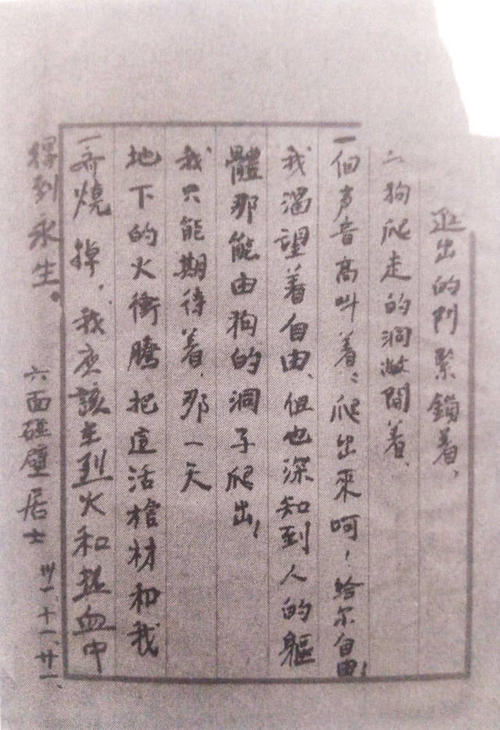 出的門緊鎖着，
狗爬走的洞敞開着、
一個声音高叫着：爬出來呵！給尔自由！
我渴望着自由、但也深知到人的軀
體那能由狗的洞子爬出！
我只能期待着，那一天
地下的火衝騰，把這活棺材和我
一齊燒掉，我应該在烈火和热血中
得到永生。
六面碰壁居士
卅一、十一、廿一、